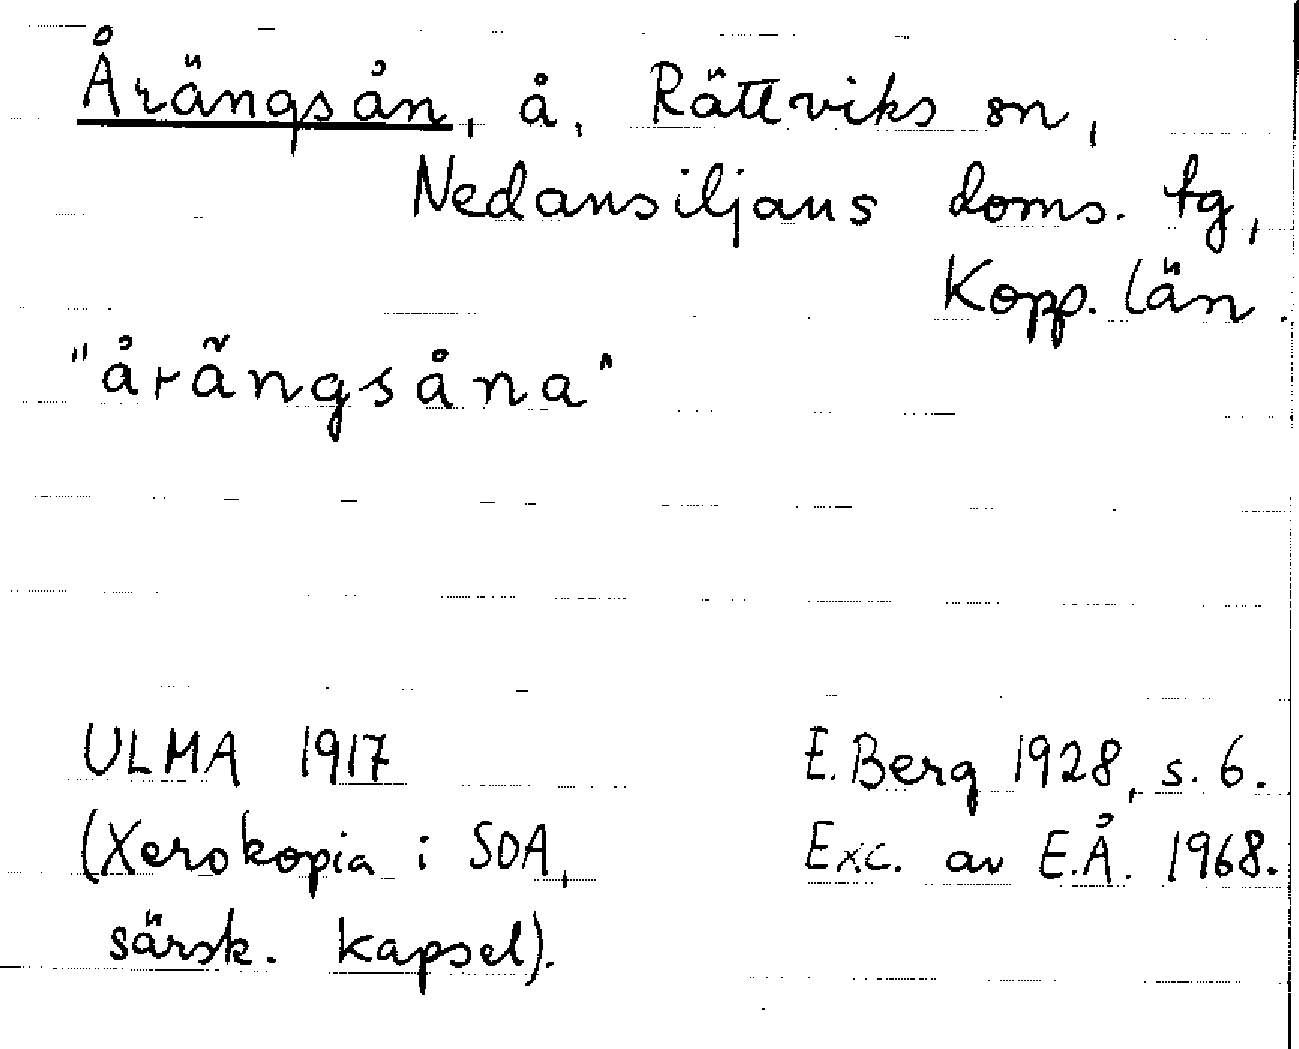 Årängsån, å, Rättviks sn,
Nedansiljans doms. tg,
Kopp. län.
"årängsåna"
ULMA 1917
E. Berg 1928, s. 6.
(Xerokopia i SOA,
Exc. av E.Å. 1968.
särsk. kapsel).